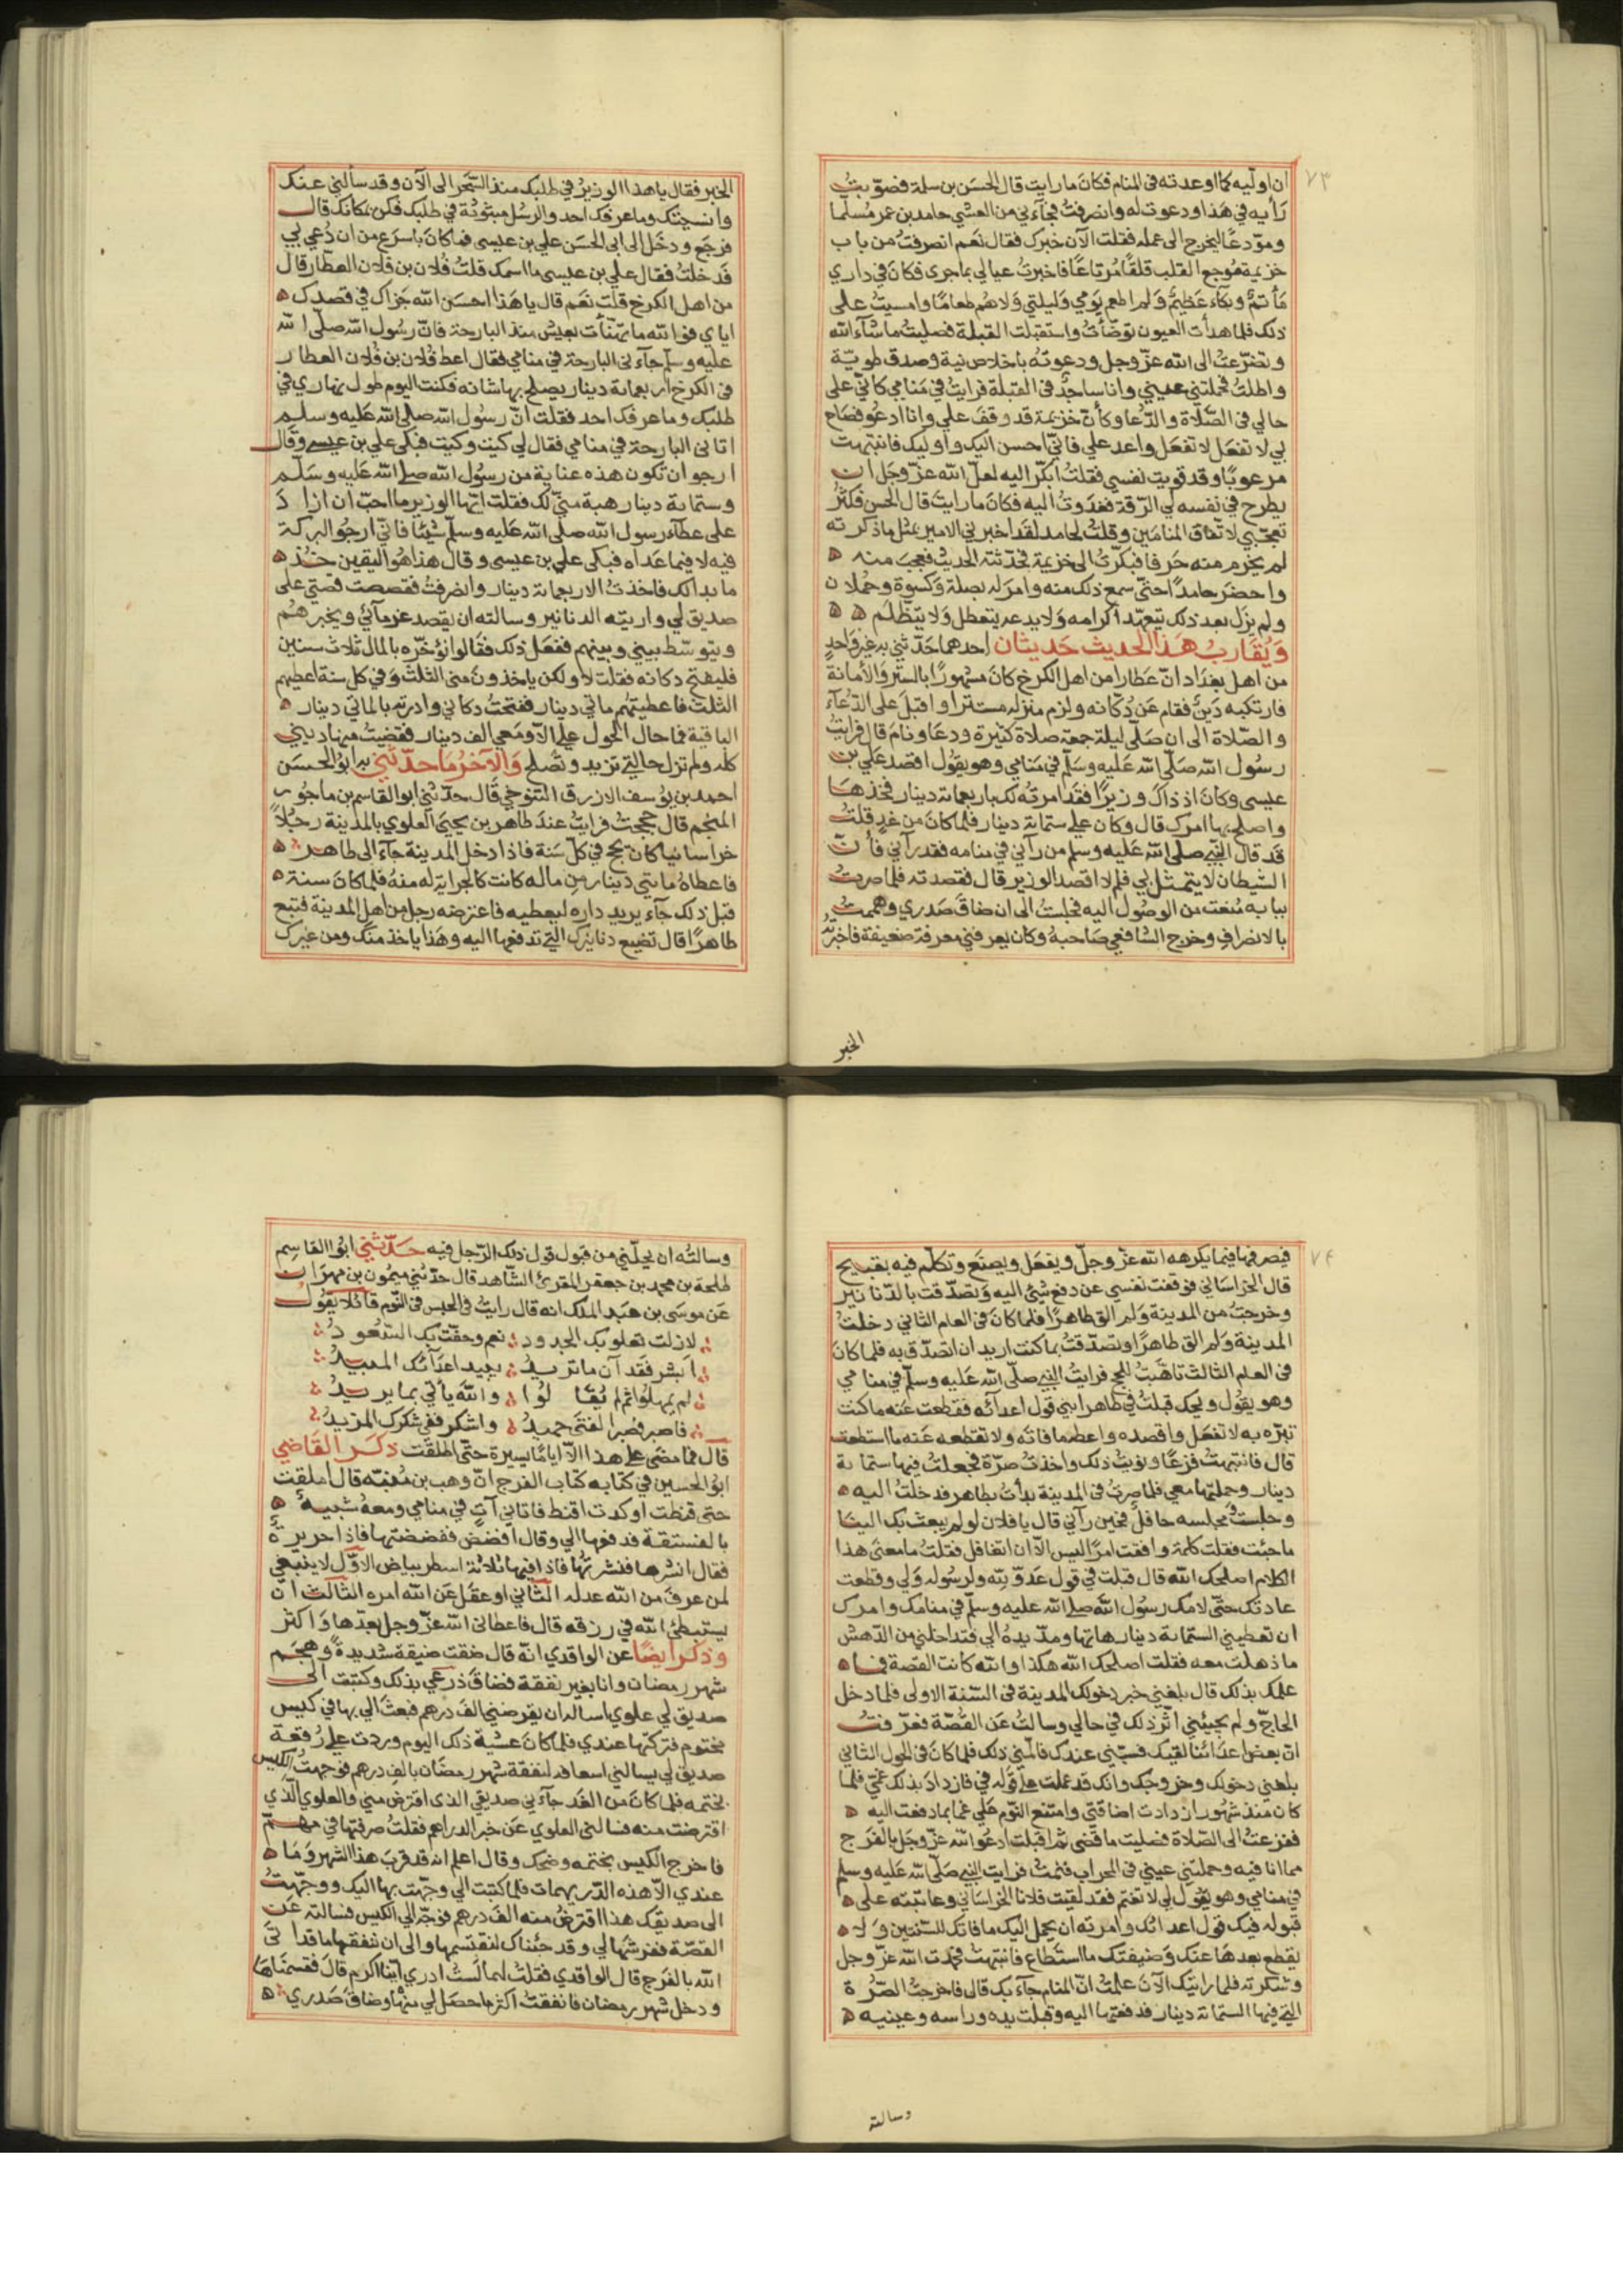 ٧٣
ان اوليه كما اوعدته فى المنام فكان ما رايت قال الحسن بن سلمة فصوّبت
رأيه في هذا ودعوت له وانصرفت فجآءني من العشي حامد بن عمر مُسلّما
وموّدعًا ليخرج الى عمله فقلت الآن خبرك فقال نعم انصرفت من باب
خزيمة موجع القلب قلقًا مُرتاعًا فاخبرتُ عيالي بما جرى فكان في داري
مأتمٌ وبكآء عظيمٌ ولم اطعم يومي وليلتي ولا هُم طعامًا وامسيت على
ذلك فلما هدأت العيون توضّأتُ واستقبلت القبلة فصليت ما شآء الله
وتضرّعتُ الى الله عزّ وجل ودعوته باخلاص نية وصدق طويّة
واطلتُ فحملتني عيني وانا ساجدٌ فى القبلة فرايتُ في منامي كانّي على
حالي فى الصّلاة والدّعا وكأنّ خزيمة قد وقف علي وانا ادعُو فصاح
بي لا تفعل لا تفعل واغد علي فانّي احسن اليك واوليك فانتبهت
مرعوبًا وقد قويت نفسي فقلتُ ابكّر اليه لعلّ الله عزّ وجل ان
يطرح في نفسه لي الرّقة فغدوتُ اليه فكان ما رايت قال الحسن فكثُر
تعجّبي لاتّفاق المنامين وقلتُ لحامد لقد اخبرني الامير بمثل ما ذكرته
لم يخرم منه حرفا فبكّرتُ الى خزيمة فحدّثته الحديث فعجب منه
واحضر حامدًا حتّى سمع ذلك منه وامر له بصلة وكسوة وحُملان
ولم يزل بعد ذلك يتعهّد اكرامه ولا يدعه يتعطل ولا يتظلّم
وَيُقاربُ هَذا الحديث حَديثان احدهما حَدّثني به غير واحدٍ
من اهل بغداد انّ عطارًا من اهل الكرخ كان مشهورًا بالستر والأمانة
فارتكبه دينٌ فقام عَن دُكّانه ولزم منزله مستترا واقبل على الدّعآء
والصّلاة الى ان صلّى ليلة جمعة صلاة كثيرة ودعا ونام قال فرايتُ
رسول الله صلّى الله عليه وسلّم في منامي وهو يقول اقصد علي بن
عيسى وكان اذ ذاك وزيرًا فقد امرتُه لك باربعماية دينار فخذها
واصلح بها امرك قال وكان علي ستماية دينار فلما كان من غدٍ قلتُ
قد قال النّبي صلى الله عليه وسلم من رآني في منامه فقد رآني فأنّ
الشيطان لا يتمثل بي فلم لا اقصد الوزير قال فقصدته فلما صرتُ
ببابه مُنعت من الوصُول اليه فجلستُ الى ان ضاق صدري وهممتُ
بالانصراف وخرج الشافعي صاحبهُ وكان يعرفني معرفة ضعيفة فاخبرته
الخبر
الخبر فقال يا هذا الوزيرُ في طلبك منذ السّحر الى الآن وقد سألني عنك
وانسيتك وما عرفك احد والرسُل مبثوثة في طلبك فكن بمكانك قال
فرجع ودخل الى ابى الحسن علي بن عيسى فما كان باسرع من ان دُعي بي
فدخلتُ فقال علي بن عيسى ما اسمك قلتُ فُلان بن فلان العطّار قال
من اهل الكرخ قلت نعم قال يا هذا احسن الله جزاك في قصدك
اياي فو الله ما تهنّأت بعيش منذ البارحة فانّ رسُول الله صلّى الله
عليه وسلم جآءني البارحة في منامي فقال اعط فُلان بن فُلان العطار
فى الكرخ اربعماية دينار يصلح بها شانه فكنت اليوم طول نهاري في
طلبك وما عرفك احد فقلت انّ رسُول الله صلى الله عليه وسلم
اتانى البارحة في منامي فقال لي كيت وكيت فبكى علي بن عيسى وقال
ارجو ان تكون هذه عناية من رسُول الله صلى الله عليه وسلّم
وستماية دينار هبة منّي لك فقلت ايّها الوزير ما احبّ ان ازاد
على عطآء رسول الله صلى الله عليه وسلّم شيئًا فانّي ارجُو البركة
فيه لا فيما عداه فبكى علي بن عيسى وقال هذا هُو اليقين خُذ
ما بدا لك فاخذتُ الاربعماية دينار وانصرفتُ فقصصت قصّتي على
صديق لي واريته الدنانير وسالته ان يقصد غرمآئي ويخبرهُم
ويتوسّط بيني وبينهم ففعل ذلك فقالوا نؤخّره بالمال ثلاث سنين
فليفتح دكانه فقلت لا ولكن ياخذون منى الثلث وفي كل سنة اعطيهم
الثلث فاعطيتُهم مايتي دينار ففتحتُ دكاني وادرته بالمايتي دينار
الباقية فما حال الحول علي الّا ومعي الف دينار فقضيتُ منها ديني
كله ولم تزل حالتي تزيد وتصلح وَالآخرُ مَا حدّثني به ابُو الحسن
احمد بن يوسف الازرق التنوخي قال حدّثني ابو القاسم بن ماجور
المنجّم قال حججتُ فرايتُ عند طاهر بن يحيى العلوي بالمدينة رجُلاً
خراسانيا كان يحج في كلّ سَنة فاذا دخل المدينة جآء الى طاهر
فاعطاهُ مايتي دينار من ماله كانت كالجراية له منهُ فلما كان سنة
قبل ذلك جآء يريد داره ليعطيه فاعترضه رجل من اهل المدينة فتبع
طاهرًا قال تضيع دنانيرك التي تدفعها اليه وهذا ياخذ منك ومن غيرك
٧٤
فيصرفها فيما يكرهه الله عزّ وجلّ ويفعل ويصنع وتكلّم فيه بقبيح
قال الخراسَاني فوقفت نفسي عن دفع شئ اليه وتصدّقت بالدّنانير
وخرجتُ من المدينة ولم الق طاهرًا فلما كان فى العام الثاني دخلتُ
المدينة ولم الق طاهرًا وتصدّقتُ بما كنت اريد ان اتصدّق به فلما كان
فى العام الثالث تاهّبتُ للحج فرايتُ النبي صلّى الله عليه وسلّم في منامي
وهو يقُول ويحك قبلت في طاهر ابني قول اعدآئه فقطعت عنه ما كنت
تبرّه به لا تفعل واقصده واعطه ما فاته ولا تقطعه عنه ما استطعت
قال فانتبهتُ فزعًا ونويتُ ذلك واخذتُ صرّة فجعلتُ فيها ستماية
دينار وحملتها معي فلما صرتُ فى المدينة بدأتُ بطاهر فدخلتُ اليه
وجلستُ في مجلسه حافلٌ فحين رآني قال يا فلان لو لم يبعث بك الينا
ما جئت فقلت كلمة وافقت امرًا ليس الّا ان اتغافل فقلتُ ما معنى هذا
الكلام اصلحك الله قال قبلت في قول عدوّ لله ولرسوله ولي وقطعت
عادتك حتّى لامك رسُول الله صلى الله عليه وسلّم في منامك وامرك
ان تعطيني الستماية دينار هاتها ومدّ يدهُ الي فتداخلني من الدّهش
ما ذهلت معه فقلت اصلحك الله هكذا والله كانت القصة فما
علمك بذلك قال بلغني خبر دخولك المدينة فى السّنة الاولى فلما دخل
الحاجّ ولم يجيئني اثر ذلك في حالي وسالتُ عَن القصّة فعرّفتُ
انّ بعض اعدائنا لقيك فسبّني عندك فالمني ذلك فلما كان فى الحول الثاني
بلغنى دخولك وخروجك وانك قد عملت على قوله في فازداد بذلك غمّي فلما
كان منذ شهُور ازدادت اضاقتي وامتنع النّوم علي غما بما دفعت اليه
ففزعتُ الى الصّلاة فصليت ما قضى ثم اقبلت ادعُو الله عزّ وجل بالفرج
مما انا فيه وحملتني عيني فى المحراب فنمتُ فرايت النبي صلّى الله عليه وسلم
في منامي وهو يقُول لي لا تغتم فقد لقيت فلانا الخراسَاني وعاتبته على
قبوله فيك قول اعدائك وامرته ان يحمل اليك ما فاتك للسنتين ولا
يقطع بعدها عنك وضيفتك ما استطاع فانتبهتُ فحمدت الله عزّ وجل
وشكرته فلما رايتك الآن علمتُ انّ المنام جآء بك قال فاخرجتُ الصّرّة
التي فيها الستماية دينار فدفعتها اليه وقبلت يده وراسه وعينيه
وسالته
وسالتُه ان يحلّني من قبول قول ذلك الرّجل فيه حَدّثني ابُو القاسِم
طلحة بن محمد بن جعفر المقرئ الشّاهد قال حدّثني ميمُون بن مهران
عَن موسَى بن عبد الملك انه قال رايتُ فى الحبس فى النّوم قائلا يقُول
لا زلت تعلو بك الجدود نعم وحفّت بك السّعود
ابشر فقد آن ما تريد يبيد اعدآئك المبيدُ
لم يمهلُوا ثم لم يُقالُوا والله يأتي بما يريدُ
فاصبر فصبر الفتى حميدُ واشكر ففي شكرك المزيدُ
قال فما مضى على هذا الّا ايامًا يسيرة حتّى اطلقت ذكر القاضي
ابُو الحسين في كتابه كتاب الفرج انّ وهب بن مُنبّه قال املقت
حتى قنطت او كدت اقنط فاتاني آتٍ في منامي ومعهُ شبيهٌ
بالفستقة فدفعها الي وقال افضض ففضضتها فاذا حريرةٌ
فقال انشرها فنشرتُها فاذا فيها ثلاثة اسطر ببياض الاوّل لا ينبغي
لمن عرف من الله عدله الثّاني او عقل عَن الله امره الثالث ان
يستبطئ الله في رزقه قال فاعطانى الله عزّ وجل بعدها واكثر
وذكر ايضًا عن الواقدي انّه قال ضقت ضيقة شديدةً وهجم
شهر رمضان وانا بغير نفقة فضاق ذرعي بذلك وكتبت الى
صديق لي علوي اسالهُ ان يقرضني الف درهم فبعث الي بها في كيس
مختوم فتركتها عندي فلما كان عشية ذلك اليوم وردت علي رُقعة
صديق لي يسالني اسعافه لنفقة شهر رمضان بالف درهم فوجهتُ الكيس
بختمه فلما كان من الغد جآءني صديقي الذى اقترض مني والعلوي الّذي
اقترضت منه فسالنى العلوي عَن خبر الدراهم فقلتُ صرفتها في مهمّ
فاخرج الكيس بختمه وضحك وقال اعلم انه قد قرب هذا الشهر وما
عندي الّا هذه الدّريهمات فلما كتبت الي وجّهت بها اليك ووجّهتُ
الى صديقك هذا اقترضُ منه الف درهم فوجّه الي الكيس فسالته عَن
القصّة فشرحها لي وقد جئناك لنقتسمها والى ان ننفقها ما قد اتى
الله بالفرج قال الواقدي فقلتُ لهما لستُ ادري ايّنا اكرم قال فقسمناها
ودخل شهر رمضان فانفقتُ اكثر ما حصل لي منها وضاق صدري